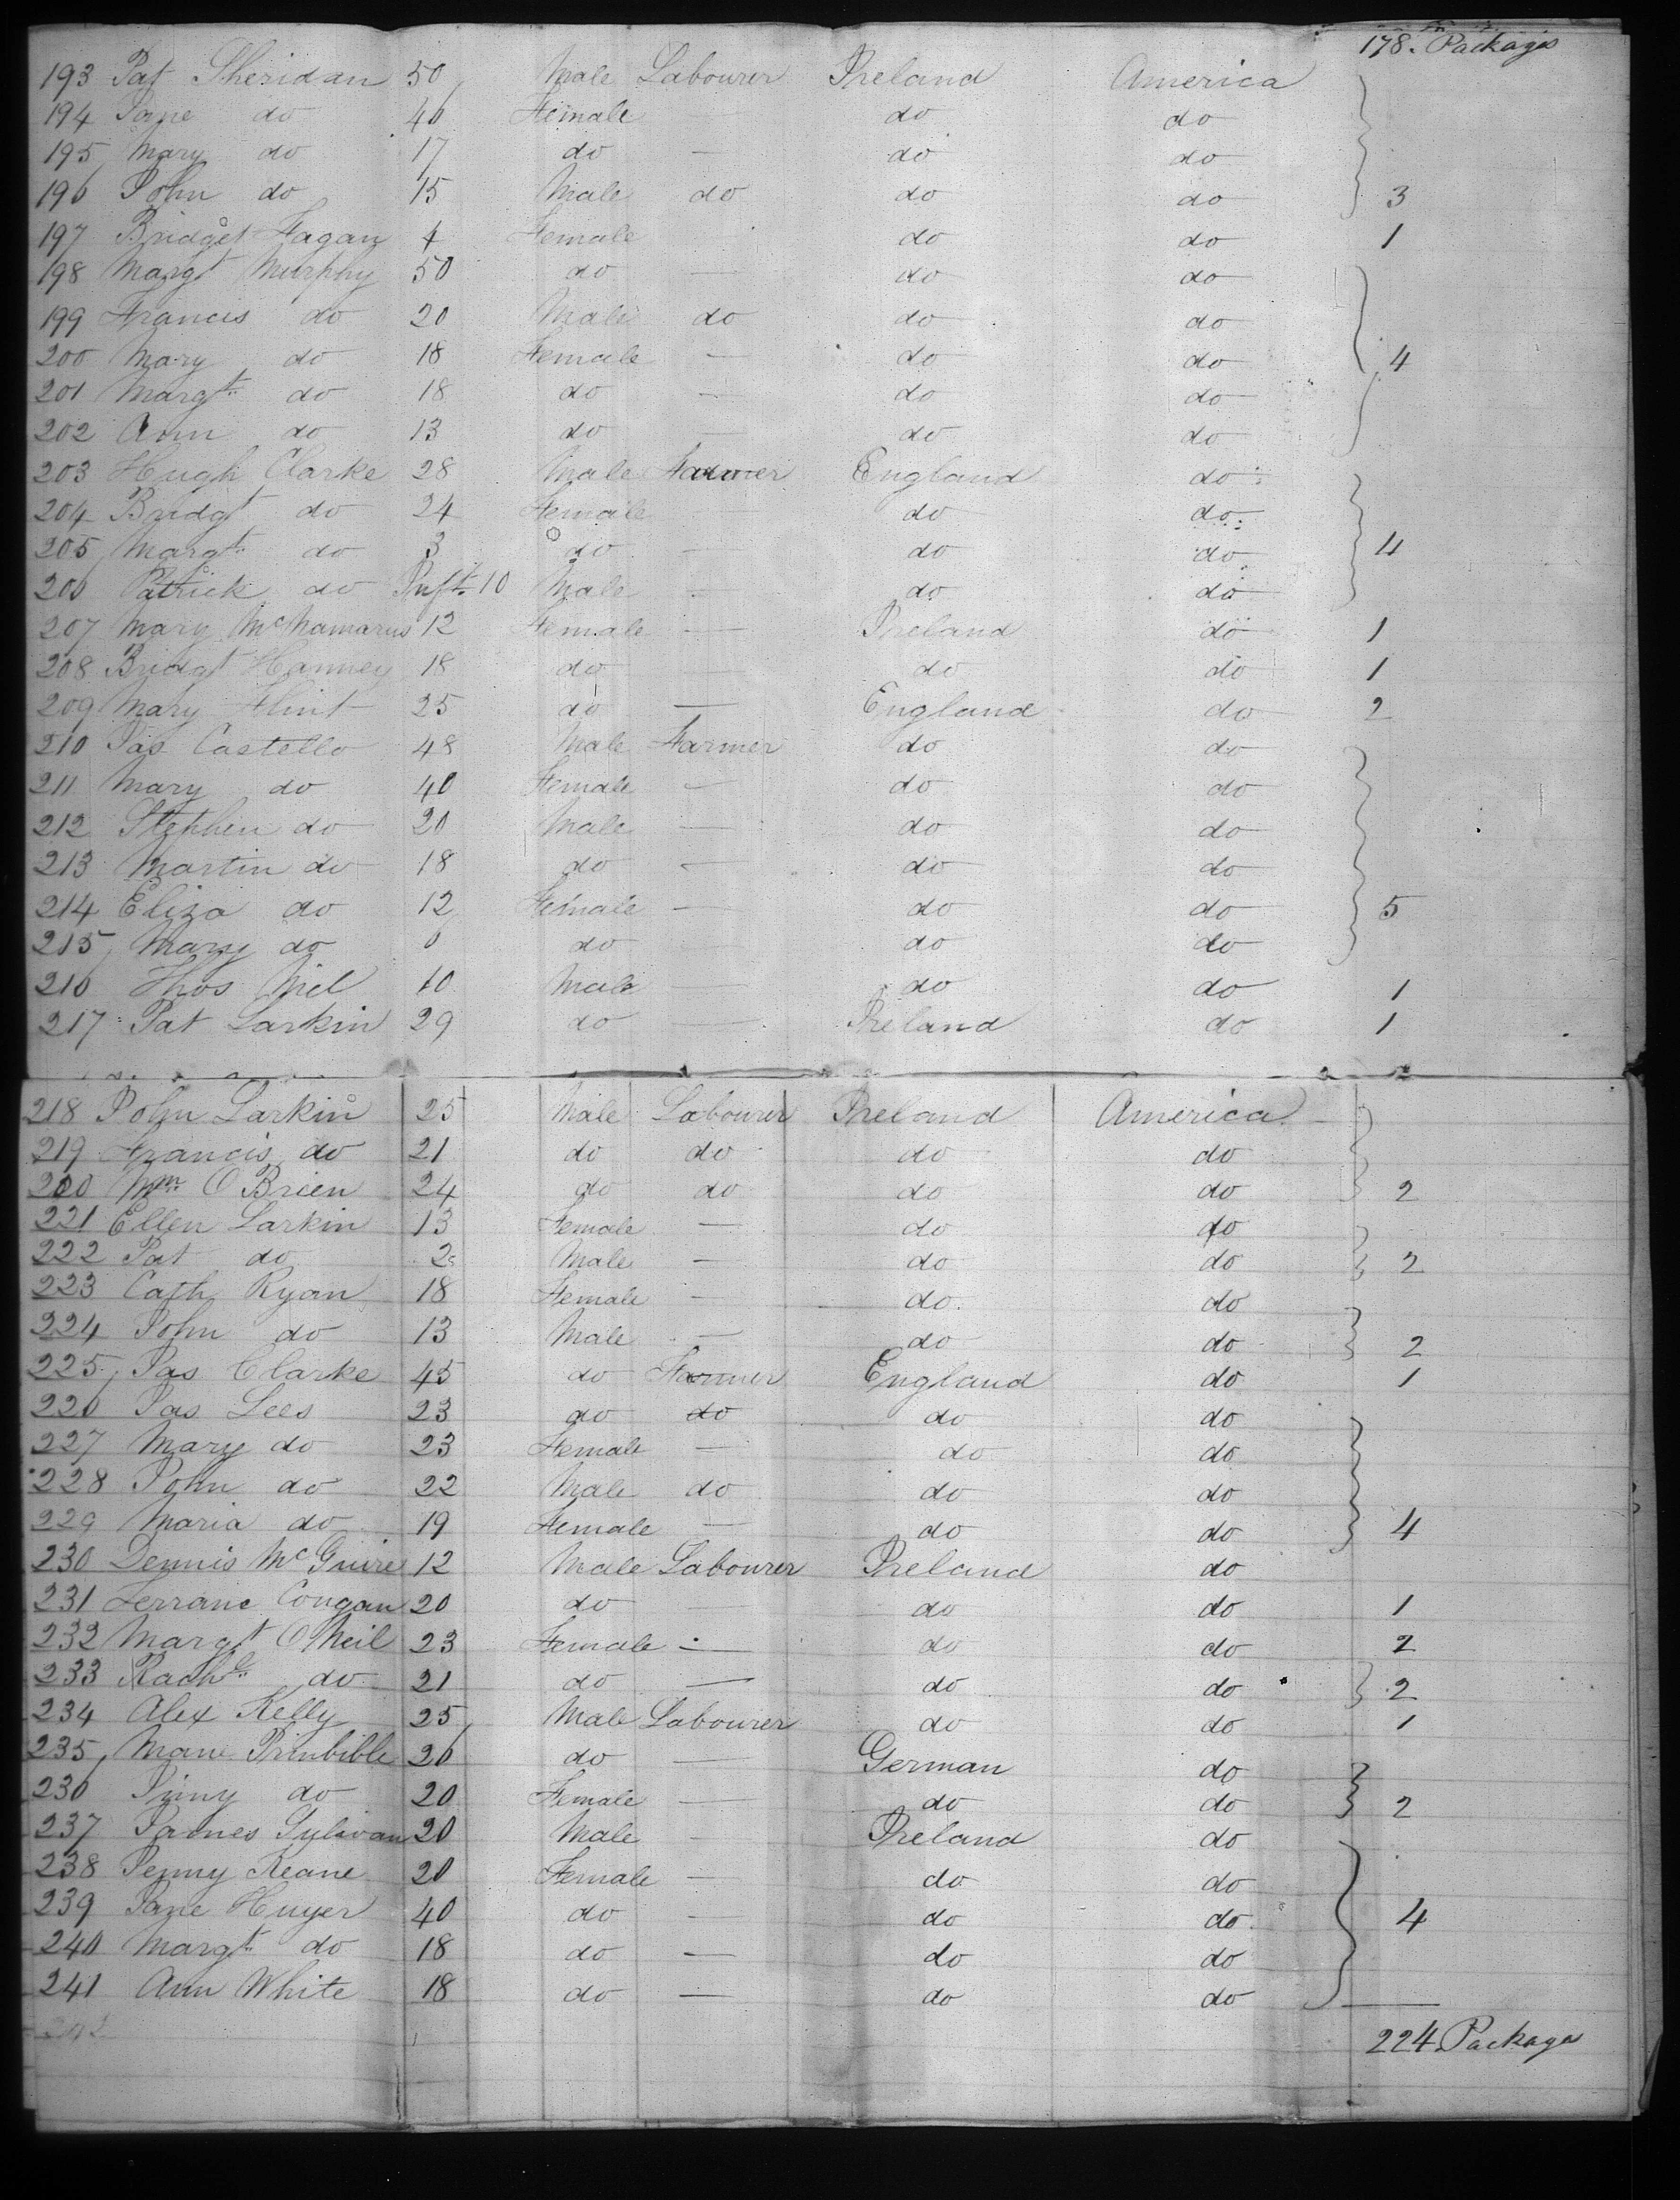 178. Packages
193 Pat Sheridan 50 Male Labourer Ireland America
194 Jane do 40 Female — do do
195 Mary do 17 do — do do
196 John do 15 Male do do do 3
197 Bridget Fagan 4 Female do do 1
198 Margt Murphy 50 do — do do
199 Francis do 20 Male do do do
200 Mary do 18 Female — do do 4
201 Margt. do 18 do — do do
202 Ann do 13 do — do do
203 Hugh Clarke 28 Male Farmer England do
204 Bridgt do 24 Female — do do
205 Margt. do 3 do — do do 4
206 Patrick do Inft. 10 Male — do do
207 Mary McNamarus 12 Female — Ireland do 1
208 Bridgt Hanney 18 do — do do 1
209 Mary Flint 25 do — England do 2
210 Jas Castello 48 Male Farmer do do
211 Mary do 40 Female — do do
212 Stephen do 20 Male — do do
213 Martin do 18 do — do do
214 Eliza do 12 Female — do do 5
215 Mary do 6 do — do do
216 Thos Niel 10 Male — do do 1
217 Pat Larkin 29 do — Ireland do 1
218 John Larkin 25 Male Labourer Ireland America
219 Francis do 21 do do do do
220 Wm. O Brien 24 do do do do 2
221 Ellen Larkin 13 Female — do do
222 Pat do Male — do do 2
223 Cath Ryan 18 Female — do do
224 John do 13 Male — do do 2
225 Jas Clarke 45 do Farmer England do 1
226 Jas Lees 23 do do do do
227 Mary do 23 Female — do do
228 John do 22 Male do do do
229 Maria do 19 Female — do do 4
230 Dennis McGuire 12 Male Labourer Ireland do
231 Terranc Cougan 20 do — do do 1
232 Margt O Neil 23 Female — do do 2
233 Rachl. do 21 do — do do 2
234 Alex Kelly 25 Male Labourer do do 1
235 26 do — German do
236 do 20 Female — do do 2
237 James Sylivan 20 Male — Ireland do
238 Jenny Keane 20 Female — do do
239 Jane Huyer 40 do — do do 4
240 Margt. do 18 do — do do
241 Ann White 18 do — do do
242
224 Packages